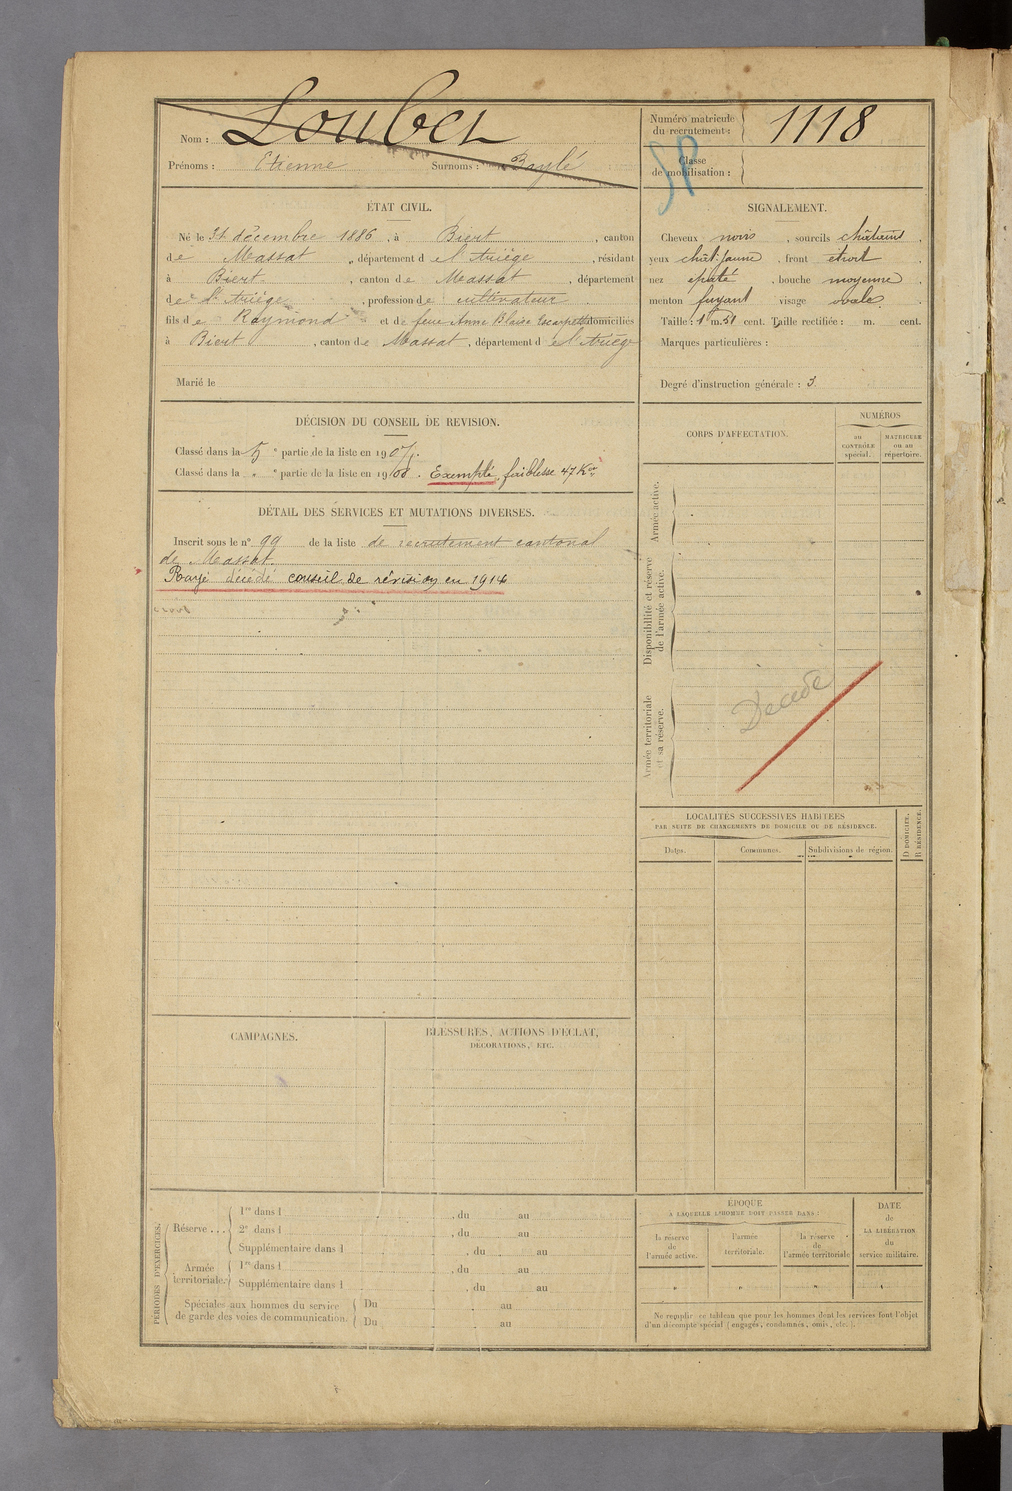 Nom : Loubet
Prénoms : Etienne Surnoms : Baylé
Numéro matricule du recrutement : 1118
Classe de mobilisation :
SP
ÉTAT CIVIL.
Né le 31 décembre 1886, à Biert, canton
de Massat, département de l'Ariège, résidant
à Biert, canton de Massat, département
de l'Ariège, profession de cultivateur
fils de Raymond et de feue Anne Blaise Escarpette domiciliés
à Biert, canton de Massat, département de l'Ariège
Marié le
SIGNALEMENT.
Cheveux noirs, sourcils châtains,
yeux chât. jaune, front étroit,
nez épaté, bouche moyenne,
menton fuyant visage ovale
Taille : 1 m. 51 cent. Taille rectifiée : m. cent.
Marques particulières :
Degré d'instruction générale : 3
DÉCISION DU CONSEIL DE REVISION.
Classé dans la 5e partie de la liste en 1907.
Classé dans la " e partie de la liste en 1908. Exempté, faiblesse 47 Kos
DÉTAIL DES SERVICES ET MUTATIONS DIVERSES.
Inscrit sous le n° 99 de la liste de recrutement cantonal
de Massat.
Rayé décédé conseil de révision en 1914
CORPS D'AFFECTATION.
NUMÉROS
au CONTRÔLE spécial.
MATRICULE ou au répertoire.
Armée active.
Disponibilité et réserve de l'armée active.
Armée territoriale et sa réserve.
Décédé
LOCALITÉS SUCCESSIVES HABITÉES
PAR SUITE DE CHANGEMENTS DE DOMICILE OU DE RÉSIDENCE.
Dates. Communes. Subdivisions de région.
D DOMICILE.
R RÉSIDENCE.
CAMPAGNES.
BLESSURES, ACTIONS D'ÉCLAT,
DÉCORATIONS, ETC.
PÉRIODES D'EXERCICES.
Réserve ...
1re dans l , du au
2e dans l , du au
Supplémentaire dans l , du au
Armée territoriale.
1re dans l , du au
Supplémentaire dans l , du au
Spéciales aux hommes du service
de garde des voies de communication.
Du au
Du au
ÉPOQUE
A LAQUELLE L'HOMME DOIT PASSER DANS :
la réserve de l'armée active.
l'armée territoriale.
la réserve de l'armée territoriale
DATE
de
LA LIBÉRATION
du
service militaire.
" " " "
Ne remplir ce tableau que pour les hommes dont les services font l'objet
d'un décompte spécial (engagés, condamnés, omis, etc.).